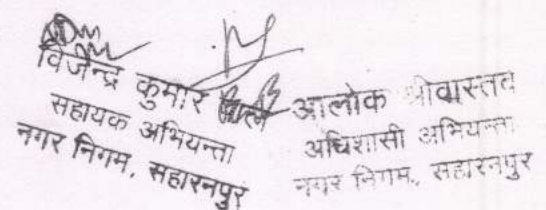 विजेन्द्र कुमार पाल
सहायक अभियन्ता
नगर निगम, सहारनपुर
आलोक श्रीवास्तव
अधिशासी अभियन्ता
नगर निगम, सहारनपुर